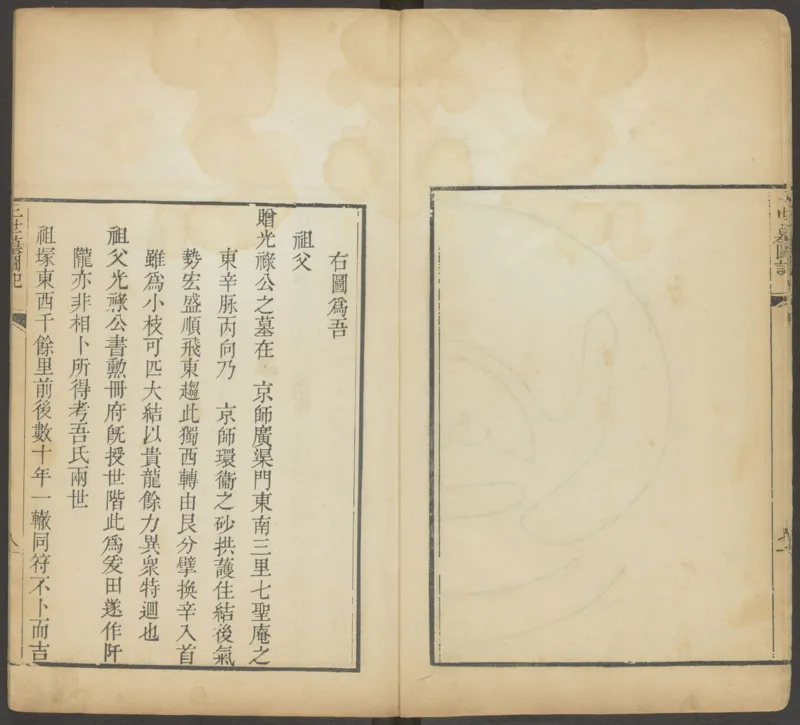 三世墓圖記
右圖爲吾
祖父
贈光祿公之墓在　京師廣渠門東南三里七聖庵之
東辛脉丙向乃　京師環衞之砂拱護住結後氣
勢宏盛順飛東趨此獨西轉由艮分擘換辛入首
雖爲小枝可匹大結以貴龍餘力異衆特迴也
祖父光祿公書勳冊府旣授世階此爲爰田遂作阡
隴亦非相卜所得考吾氏兩世
祖塚東西千餘里前後數十年一轍同符不卜而吉
三世墓圖記